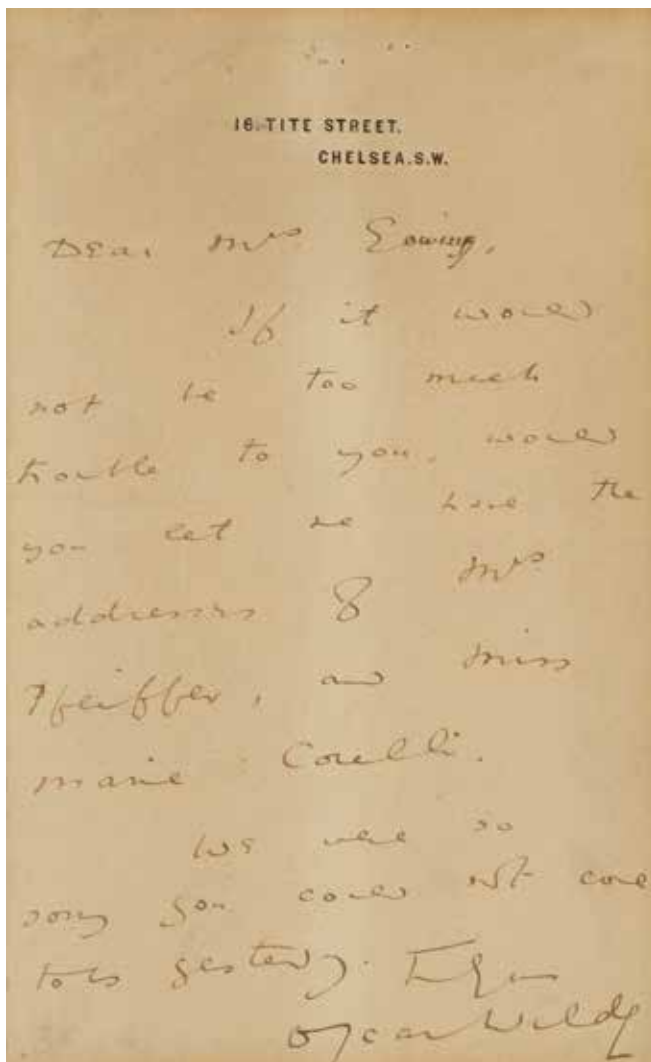 16. TITE STREET.
CHELSEA. S.W.
Dear Mrs Gowing,
If it would
not be too much
trouble to you, would
you let me have the
addresses of Mrs
Pfeiffer, and Miss
Marie Corelli.
We were so
sorry you could not come
to us yesterday.
Oscar Wilde